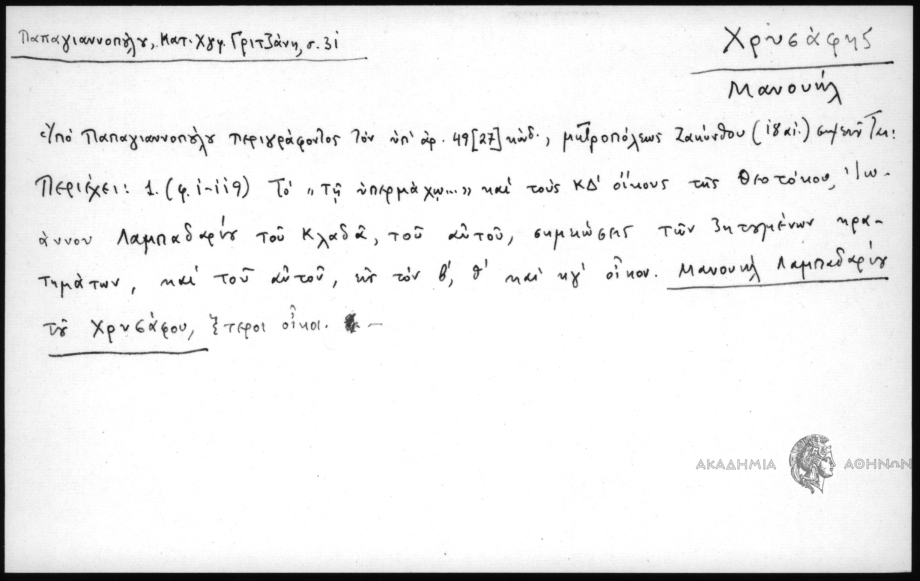 Παπαγιαννοπούλου, Κατ. Χγφ. Γριτζάνη, σ. 31
Χρυσάφης
Μανουήλ
Ὑπό Παπαγιαννοπούλου περιγράφοντος τόν ὑπ' ἀρ. 49[27] κώδ., μητροπόλεως Ζακύνθου (ις αἰ.)
Περιέχει: 1. (φ. 1-119) Τό "τῇ ὑπερμάχῳ..." καί τούς ΚΔ' οἴκους τῆς Θεοτόκου, Ἰω-
άννου Λαμπαδαρίου τοῦ Κλαδᾶ, τοῦ αὐτοῦ, σημειώσεις τῶν ζητουμένων κρα-
τημάτων, καί τοῦ αὐτοῦ, εἰς τόν β', θ' καί κγ' οἶκον. Μανουήλ Λαμπαδαρίου
τοῦ Χρυσάφου, ἕτεροι οἶκοι. –
ΑΚΑΔΗΜΙΑ ΑΘΗΝΩΝ